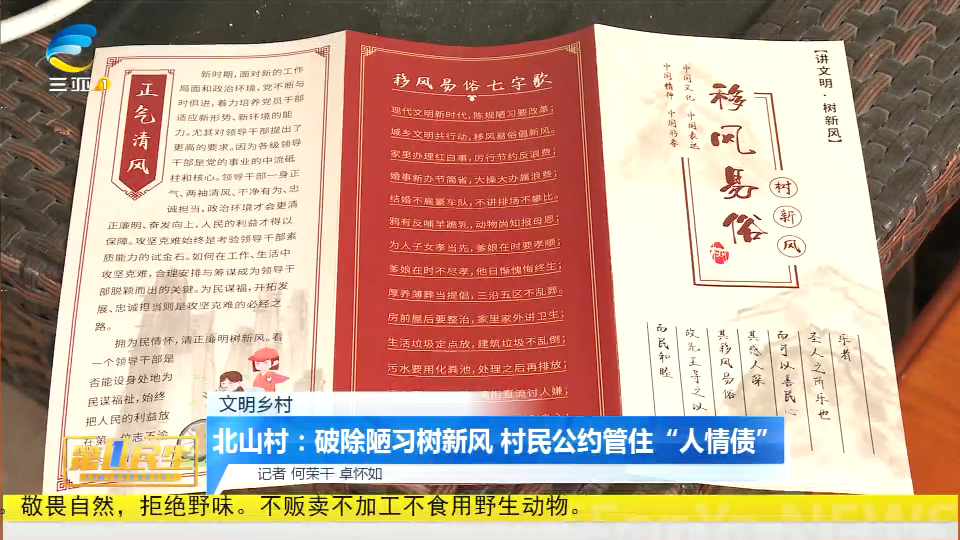 三亚1
正气清风
新时期，面对新的工作
局面和政治环境，党不断与
时俱进，着力培养党员干部
适应新形势、新环境的能
力。尤其对领导干部提出了
更高的要求。因为各级领导
干部是党的事业的中流砥
柱和核心。领导干部一身正
气、两袖清风、干净有为、忠
诚担当，政治环境才会更清
正廉明、奋发向上，人民的利益才得以
保障。攻坚克难始终是考验领导干部素
质能力的试金石。如何在工作、生活中
攻坚克难，合理安排与筹谋成为领导干
部脱颖而出的关键。为民谋福，开拓发
展、忠诚担当则是攻坚克难的必经之
路。
拥为民情怀，清正廉明树新风。看
一个领导干部是
否能设身处地为
民谋福祉，始终
把人民的利益放
移风易俗七字歌
现代文明新时代，陈规陋习要改革；
城乡文明共行动，移风易俗倡新风。
家里办理红白事，厉行节约反浪费；
婚事新办节简省，大操大办属浪费；
结婚不雇豪车队，不讲排场不攀比。
鸦有反哺羊跪乳，动物尚知报母恩；
为人子女孝当先，爹娘在时要孝顺；
爹娘在时不尽孝，他日惭愧悔终生；
厚养薄葬当提倡，三沿五区不乱葬。
房前屋后要整治，家里家外讲卫生；
生活垃圾定点放，建筑垃圾不乱倒；
污水要用化粪池，处理之后再排放；
街直流讨人嫌；
【讲文明·树新风】
移风易俗
树新风
中国文化 中国表达
中国精神 中国形象
乐者
圣人之所乐也
而可以善民心
其感人深
其移风易俗
故先王导之以
而民和睦
文明乡村
北山村：破除陋习树新风 村民公约管住“人情债”
记者 何荣干 卓怀如
第1民生
。敬畏自然，拒绝野味。不贩卖不加工不食用野生动物。